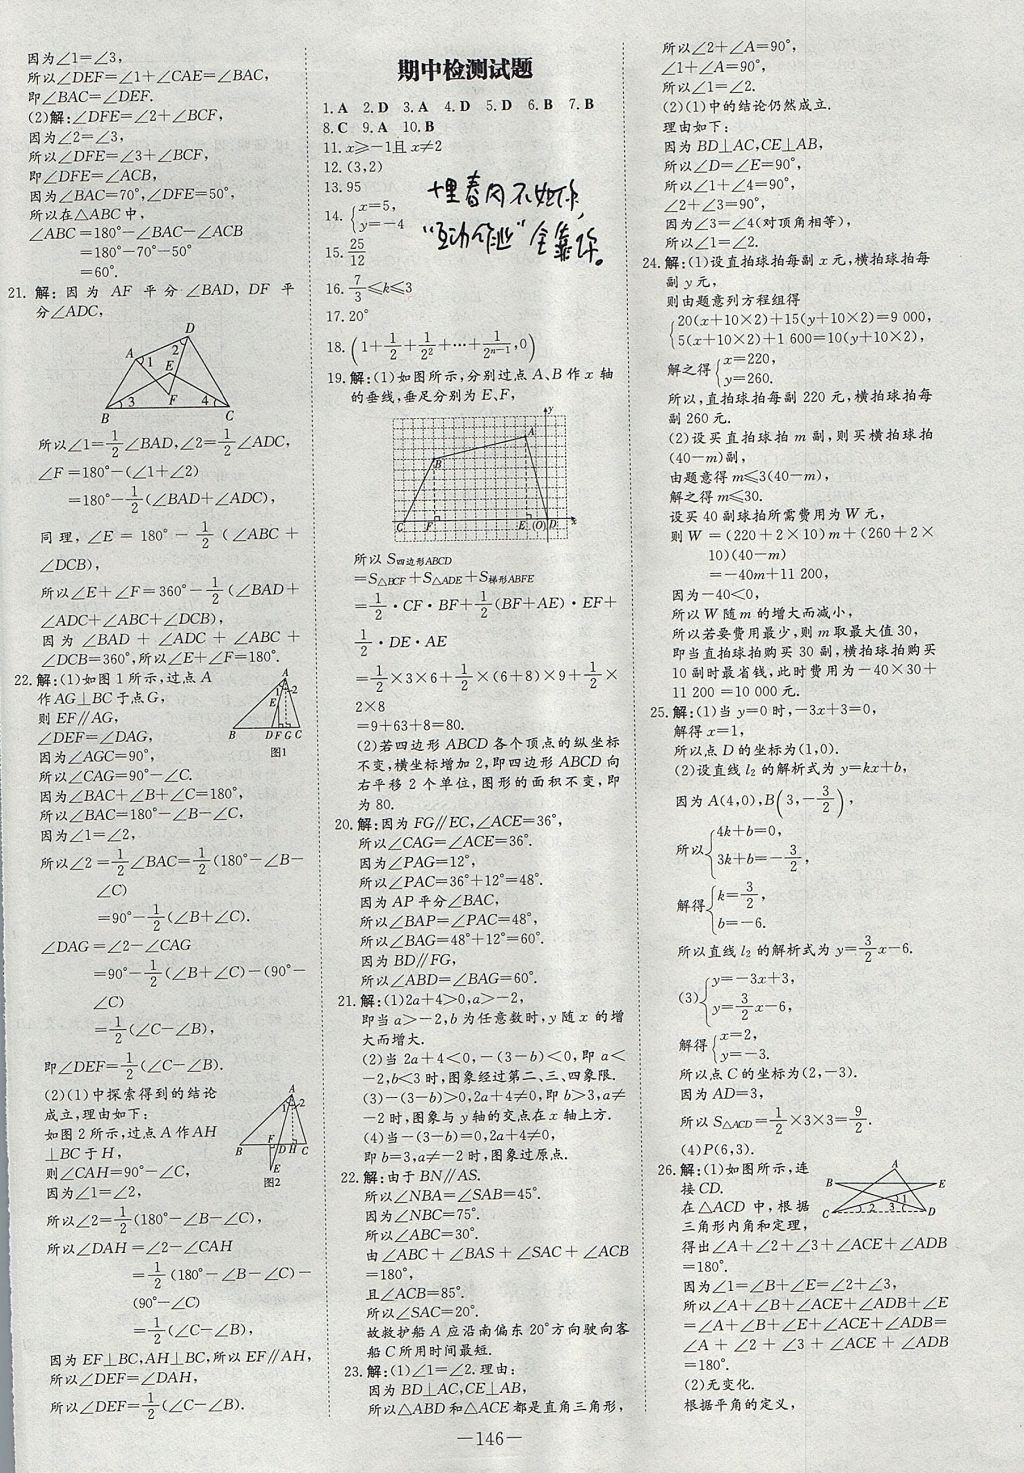 因为∠1=∠3,
所以∠DEF=∠1+∠CAE=∠BAC,
即∠BAC=∠DEF.
(2)解:∠DFE=∠2+∠BCF,
因为∠2=∠3,
所以∠DFE=∠3+∠BCF,
即∠DFE=∠ACB,
因为∠BAC=70°,∠DFE=50°,
所以在△ABC中,
∠ABC=180°-∠BAC-∠ACB
=180°-70°-50°
=60°.
21. 解:因为 AF 平分∠BAD, DF 平
分∠ADC,
D
A
2
1
E
F
3
4
B
C
所以∠1=1/2∠BAD,∠2=1/2∠ADC,
∠F=180°-(∠1+∠2)
=180°-1/2(∠BAD+∠ADC),
同理,∠E=180°-1/2(∠ABC+
∠DCB),
所以∠E+∠F=360°-1/2(∠BAD+
∠ADC+∠ABC+∠DCB),
因为∠BAD+∠ADC+∠ABC+
∠DCB=360°,所以∠E+∠F=180°.
22. 解:(1)如图1所示,过点A
作AG⊥BC于点G,
则EF∥AG,
∠DEF=∠DAG,
因为∠AGC=90°,
所以∠CAG=90°-∠C.
因为∠BAC+∠B+∠C=180°,
所以∠BAC=180°-∠B-∠C,
因为∠1=∠2,
A
1 2
E
B DFGC
图1
所以∠2=1/2∠BAC=1/2(180°-∠B-
∠C)
=90°-1/2(∠B+∠C).
∠DAG=∠2-∠CAG
=90°-1/2(∠B+∠C)-(90°-
∠C)
=1/2(∠C-∠B),
即∠DEF=1/2(∠C-∠B).
(2)(1)中探索得到的结论
成立,理由如下:
如图2所示,过点A作AH
⊥BC于H,
则∠CAH=90°-∠C,
因为∠1=∠2,
A
1 2
F
B DH C
E
图2
所以∠2=1/2(180°-∠B-∠C),
所以∠DAH=∠2-∠CAH
=1/2(180°-∠B-∠C)-
(90°-∠C)
=1/2(∠C-∠B),
因为EF⊥BC,AH⊥BC,所以EF∥AH,
所以∠DEF=∠DAH,
所以∠DEF=1/2(∠C-∠B).
期中检测试题
1. A 2. D 3. A 4. D 5. D 6. B 7. B
8. C 9. A 10. B
11. x≥-1且x≠2
12. (3,2)
13. 95
14. {x=5, y=-4
15. 25/12
16. 7/3≤k≤3
17. 20°
18. (1+1/2+1/2²+…+1/2ⁿ⁻¹,0)
春风不如你,
“互动作业”全靠你。
19. 解:(1)如图所示,分别过点A、B作x轴
的垂线,垂足分别为E、F,
y
A
B
C F E (O)D x
所以S四边形ABCD
=S△BCF+S△ADE+S梯形ABFE
=1/2·CF·BF+1/2(BF+AE)·EF+
1/2·DE·AE
=1/2×3×6+1/2×(6+8)×9+1/2×
2×8
=9+63+8=80.
(2)若四边形ABCD各个顶点的纵坐标
不变,横坐标增加2,即四边形ABCD向
右平移2个单位,图形的面积不变,即
为80.
20. 解:因为FG∥EC,∠ACE=36°,
所以∠CAG=∠ACE=36°.
因为∠PAG=12°,
所以∠PAC=36°+12°=48°.
因为AP平分∠BAC,
所以∠BAP=∠PAC=48°,
所以∠BAG=48°+12°=60°.
因为BD∥FG,
所以∠ABD=∠BAG=60°.
21. 解:(1)2a+4>0,a>-2,
即当a>-2,b为任意数时,y随x的增
大而增大.
(2)当2a+4<0,-(3-b)<0,即a<
-2,b<3时,图象经过第二、三、四象限.
(3)-(3-b)>0,2a+4≠0,即b>3,a≠
-2时,图象与y轴的交点在x轴上方.
(4)当-(3-b)=0,2a+4≠0,
即b=3,a≠-2时,图象过原点.
22. 解:由于BN∥AS.
所以∠NBA=∠SAB=45°.
因为∠NBC=75°.
所以∠ABC=30°.
由∠ABC+∠BAS+∠SAC+∠ACB
=180°,
且∠ACB=85°.
所以∠SAC=20°.
故救护船A应沿南偏东20°方向驶向客
船C所用时间最短.
23. 解:(1)∠1=∠2.理由:
因为BD⊥AC,CE⊥AB,
所以△ABD和△ACE都是直角三角形,
所以∠2+∠A=90°,
∠1+∠A=90°,
所以∠1=∠2.
(2)(1)中的结论仍然成立.
理由如下:
因为BD⊥AC,CE⊥AB,
所以∠D=∠E=90°,
所以∠1+∠4=90°,
∠2+∠3=90°,
因为∠3=∠4(对顶角相等),
所以∠1=∠2.
24. 解:(1)设直拍球拍每副x元,横拍球拍每
副y元,
则由题意列方程组得
{20(x+10×2)+15(y+10×2)=9 000,
5(x+10×2)+1 600=10(y+10×2),
解之得{x=220, y=260.
所以,直拍球拍每副220元,横拍球拍每
副260元.
(2)设买直拍球拍m副,则买横拍球拍
(40-m)副,
由题意得m≤3(40-m),
解之得m≤30.
设买40副球拍所需费用为W元,
则W=(220+2×10)m+(260+2×
10)(40-m)
=-40m+11 200,
因为-40<0,
所以W随m的增大而减小,
所以若要费用最少,则m取最大值30,
即当直拍球拍购买30副,横拍球拍购买
10副时最省钱,此时费用为-40×30+
11 200=10 000元.
25. 解:(1)当y=0时,-3x+3=0,
解得x=1,
所以点D的坐标为(1,0).
(2)设直线l₂的解析式为y=kx+b,
因为A(4,0),B(3,-3/2),
所以{4k+b=0, 3k+b=-3/2,
解得{k=3/2, b=-6.
所以直线l₂的解析式为y=3/2x-6.
(3){y=-3x+3, y=3/2x-6,
解得{x=2, y=-3.
所以点C的坐标为(2,-3).
因为AD=3,
所以S△ACD=1/2×3×3=9/2.
(4)P(6,3).
26. 解:(1)如图所示,连
接CD.
在△ACD中,根据
三角形内角和定理,
A
B E
1
C 2 3 D
得出∠A+∠2+∠3+∠ACE+∠ADB
=180°.
因为∠1=∠B+∠E=∠2+∠3,
所以∠A+∠B+∠ACE+∠ADB+∠E
=∠A+∠B+∠E+∠ACE+∠ADB=
∠A+∠2+∠3+∠ACE+∠ADB
=180°.
(2)无变化.
根据平角的定义,
—146—